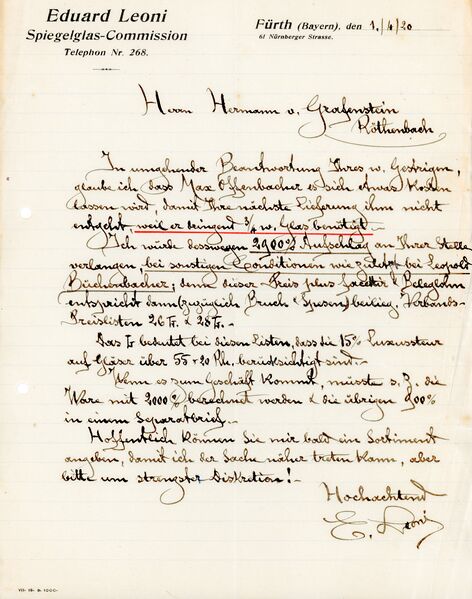 Eduard Leoni
Spiegelglas-Commission
Telephon Nr. 268.
Fürth (Bayern), den 1./4/20
61 Nürnberger Strasse.
Herrn Hermann v. Grafenstein
Röthenbach
In umgehender Beantwortung Ihres v. Gestrigen,
glaube ich dass Max Offenbacher es sich etwas kosten
lassen wird, damit Ihre nächste Lieferung ihm nicht
entgeht, weil er dringend 3/4 w. Glas benötigt.-
Ich würde desswegen 2900% Aufschlag an Ihrer Stelle
verlangen, bei sonstigen Conditionen wie zuletzt bei Leopold
Büchenbacher; denn dieser Preis plus Facettir & Beleglohn
entspricht dann (zuzüglich Bruch & Spesen) beiläufig Verbands-
Preislisten 26 Fr. & 28 Fr.-
Das Fr bedeutet bei diesen Listen, dass die 15% Luxussteur
auf Gläser über 55 x 20 Pln. berücksichtigt sind.-
Wenn es zum Geschäft kommt, müsste s. Z. die
Ware mit 2000% berechnet werden & die übrigen 900%
in einem Separatbrief.-
Hoffentlich können Sie mir bald ein Sortiment
angeben, damit ich der Sache näher treten kann, aber
bitte um strengster Diskretion!-
Hochachtend
E. Leoni
VII- 19- 9- 1000-